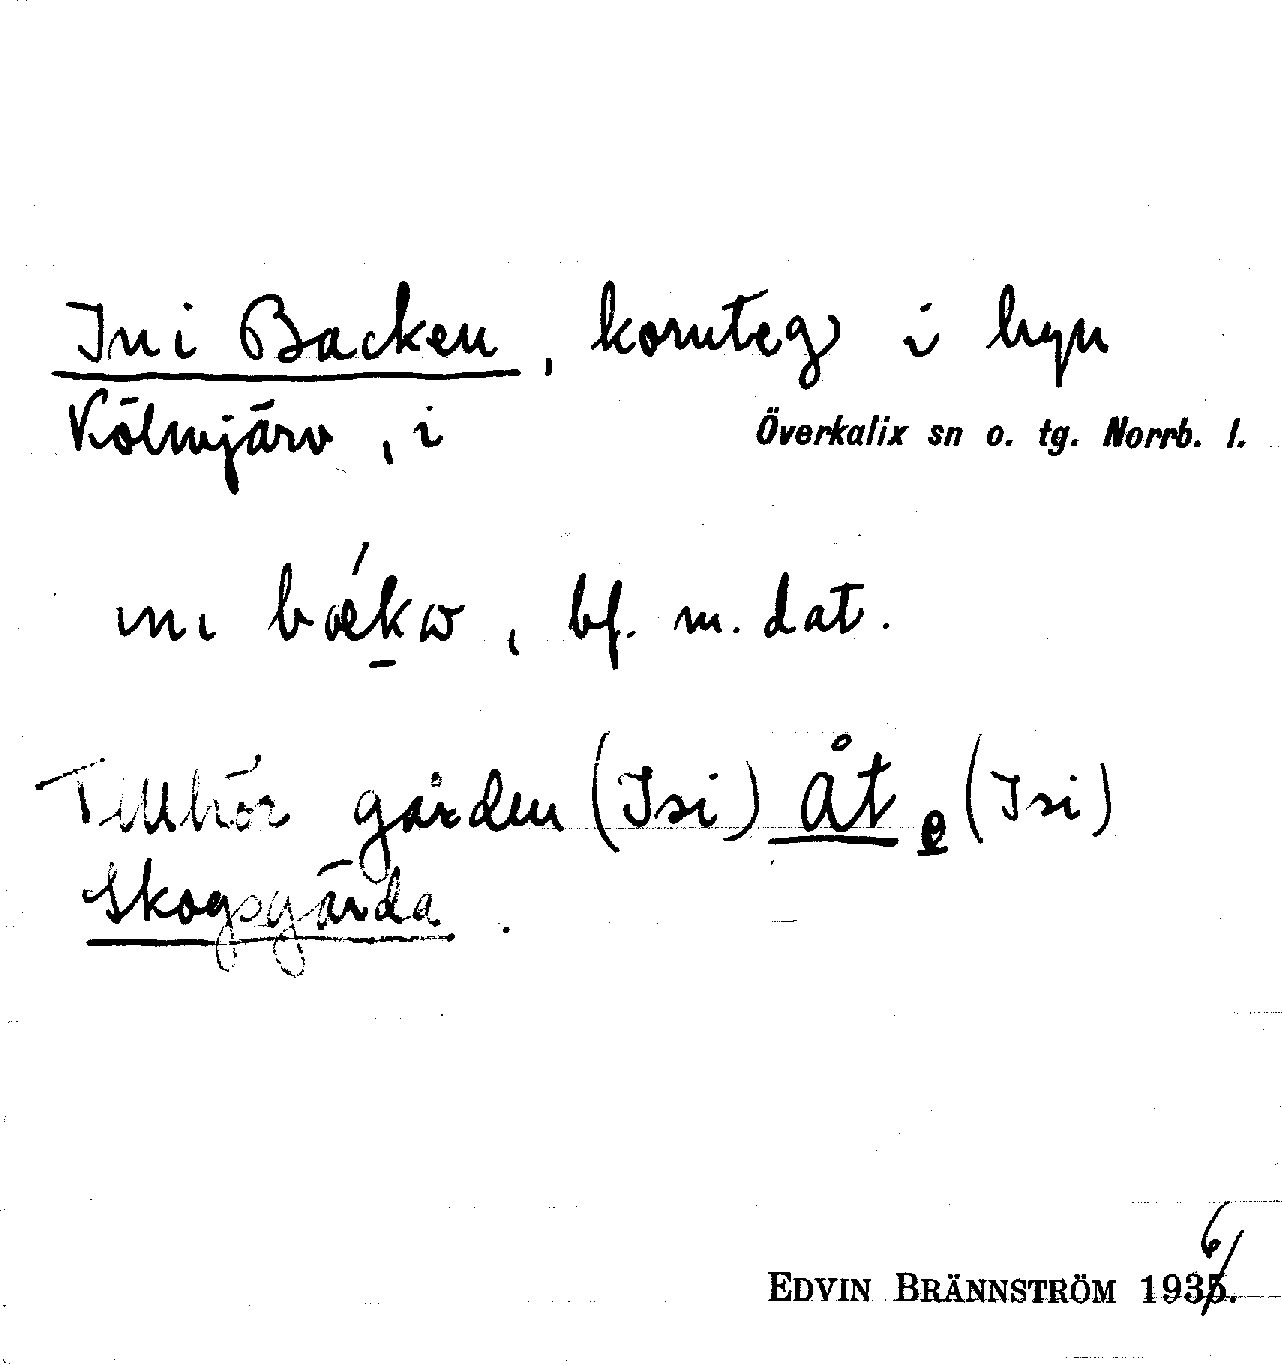 In i Backen, kornteg i byn
Kölmjärv, i Överkalix sn o. tg. Norrb. l.
ini bǽkω, bf. m. dat.
Tillhör gården (Isi) Åt e (Isi)
Skogsgärda.
EDVIN BRÄNNSTRÖM 1936.